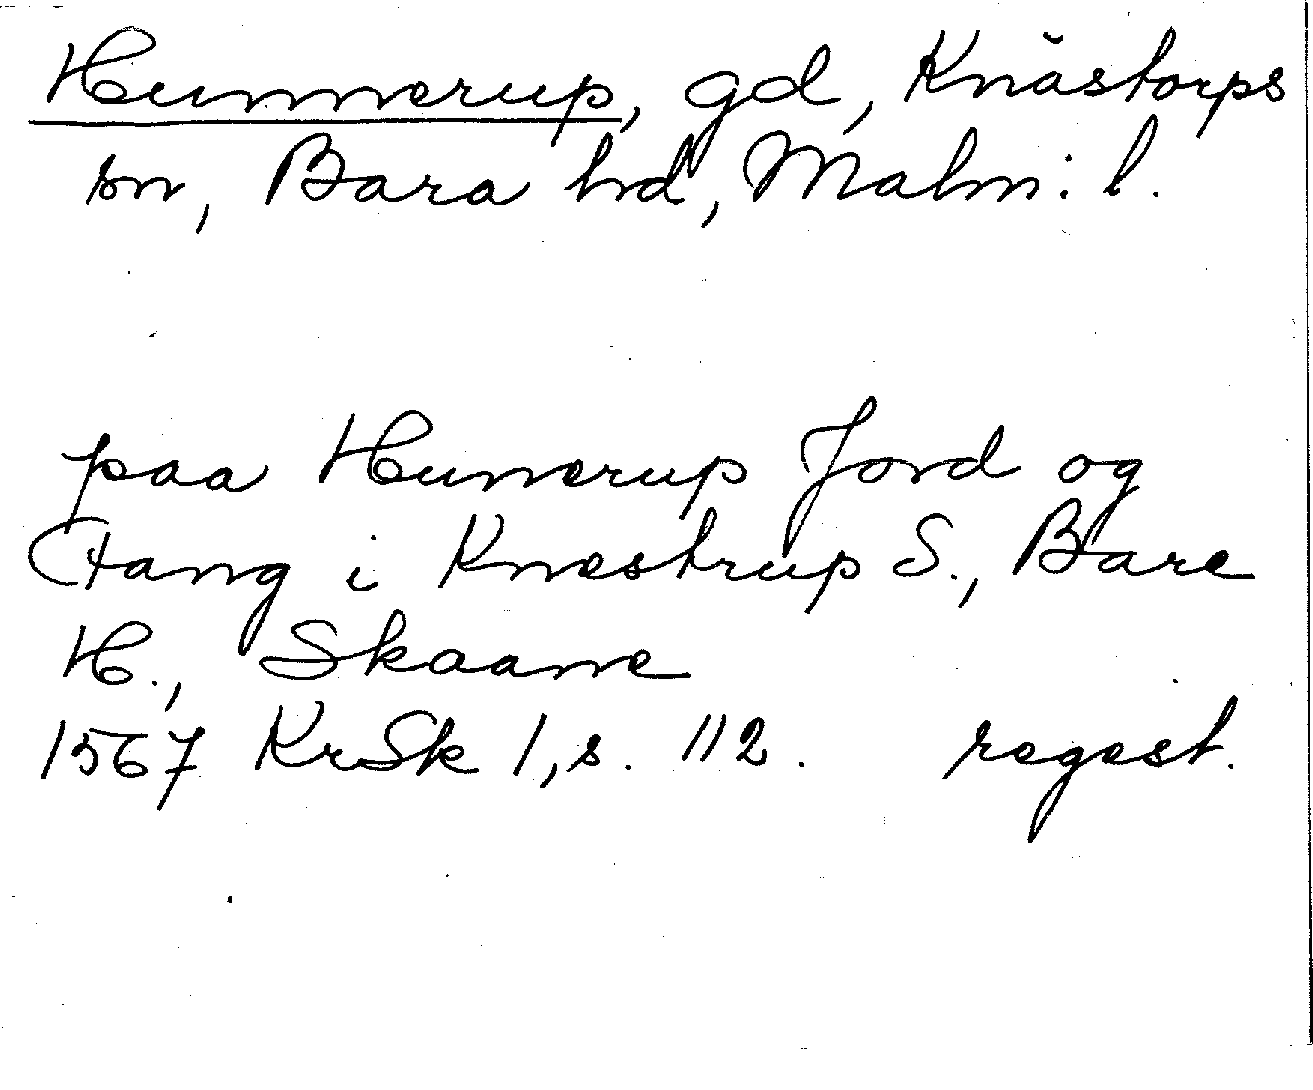 Hunnerup, gd, Knästorps
sn, Bara hd, Malm. l.
paa Hunerup Jord og
Fang i Knestrup S., Bare
H., Skaane
1567 KrSk 1, s. 112. regest.